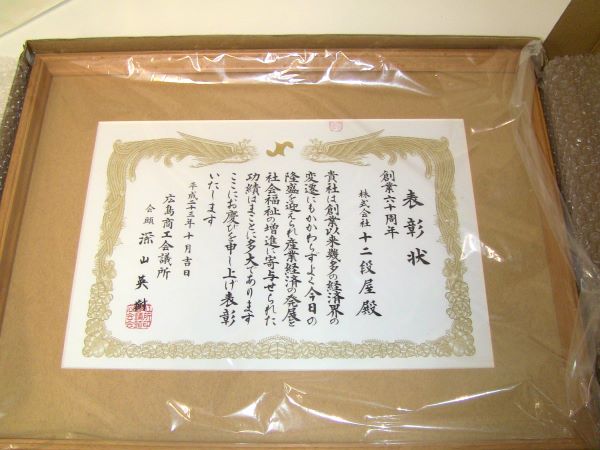 表彰状
創業六十周年
株式会社 十二段屋殿
貴社は創業以来幾多の経済界の
変遷にもかかわらずよく今日の
隆盛を迎えられ産業経済の発展と
社会福祉の増進に寄与せられた
功績はまことに多大であります
ここにお慶びを申し上げ表彰
いたします
平成二十三年十月吉日
広島商工会議所
会頭 深山英樹